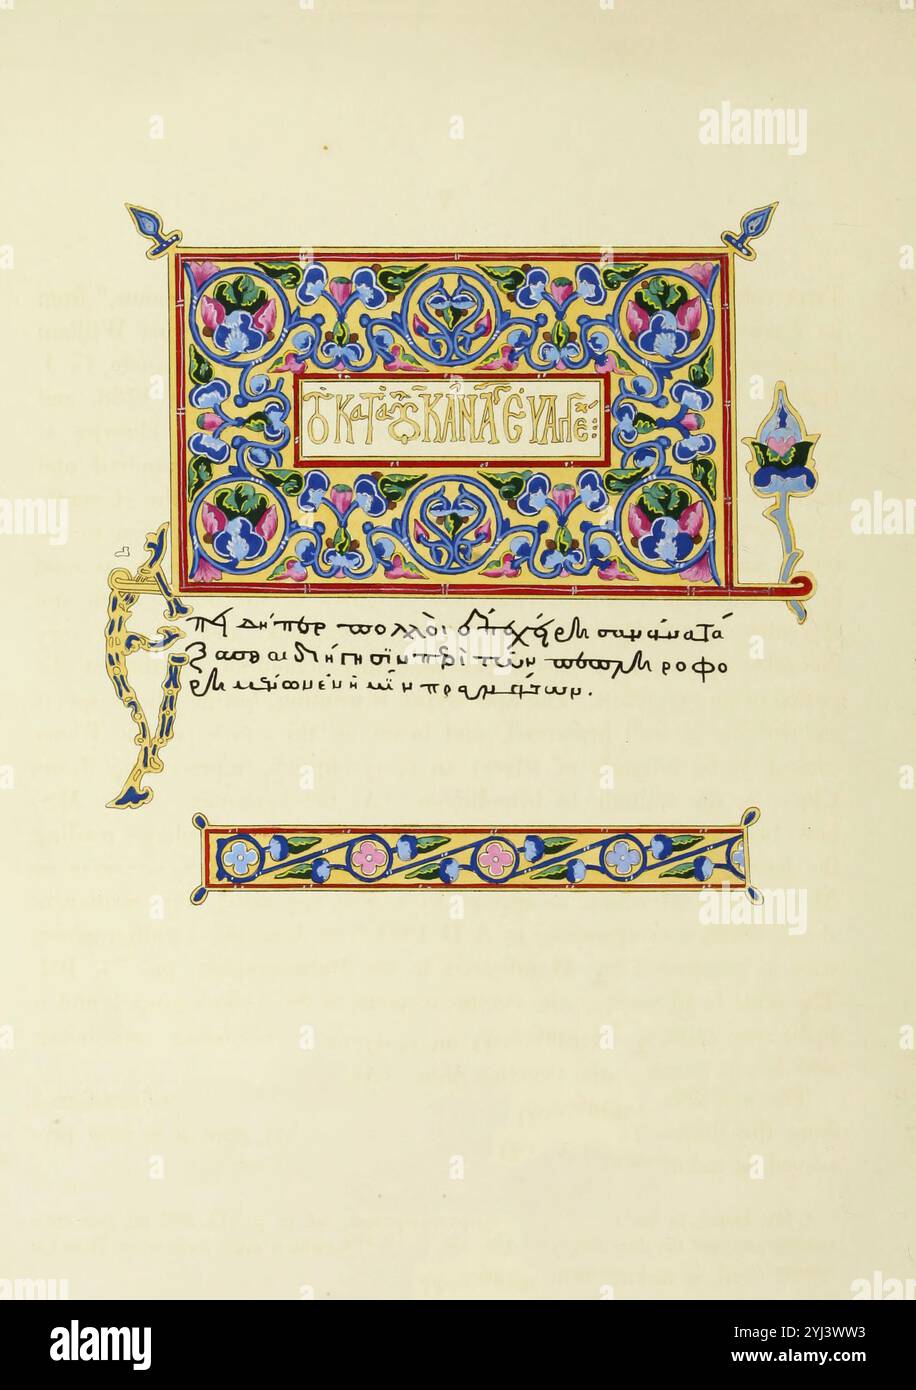 alamy
Τὸ ΚΑΤΑ ΛΟΥΚΑΝ
Ἐπειδήπερ πολλοὶ ἐπεχείρησαν ἀνατά
ξασθαι διήγησϊν περὶ τῶν πεπληροφο
ρημένων ἐν ἡμῖν πραγμάτων.
alamy
Image ID: 2YJ3WW3
www.alamy.com